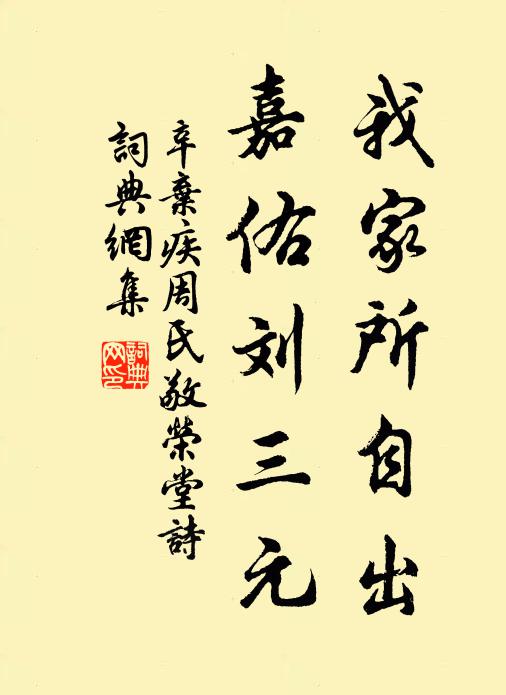 我家所自出
嘉佑刘三元
辛棄疾周氏敬榮堂詩
詞典網集
詞典网印